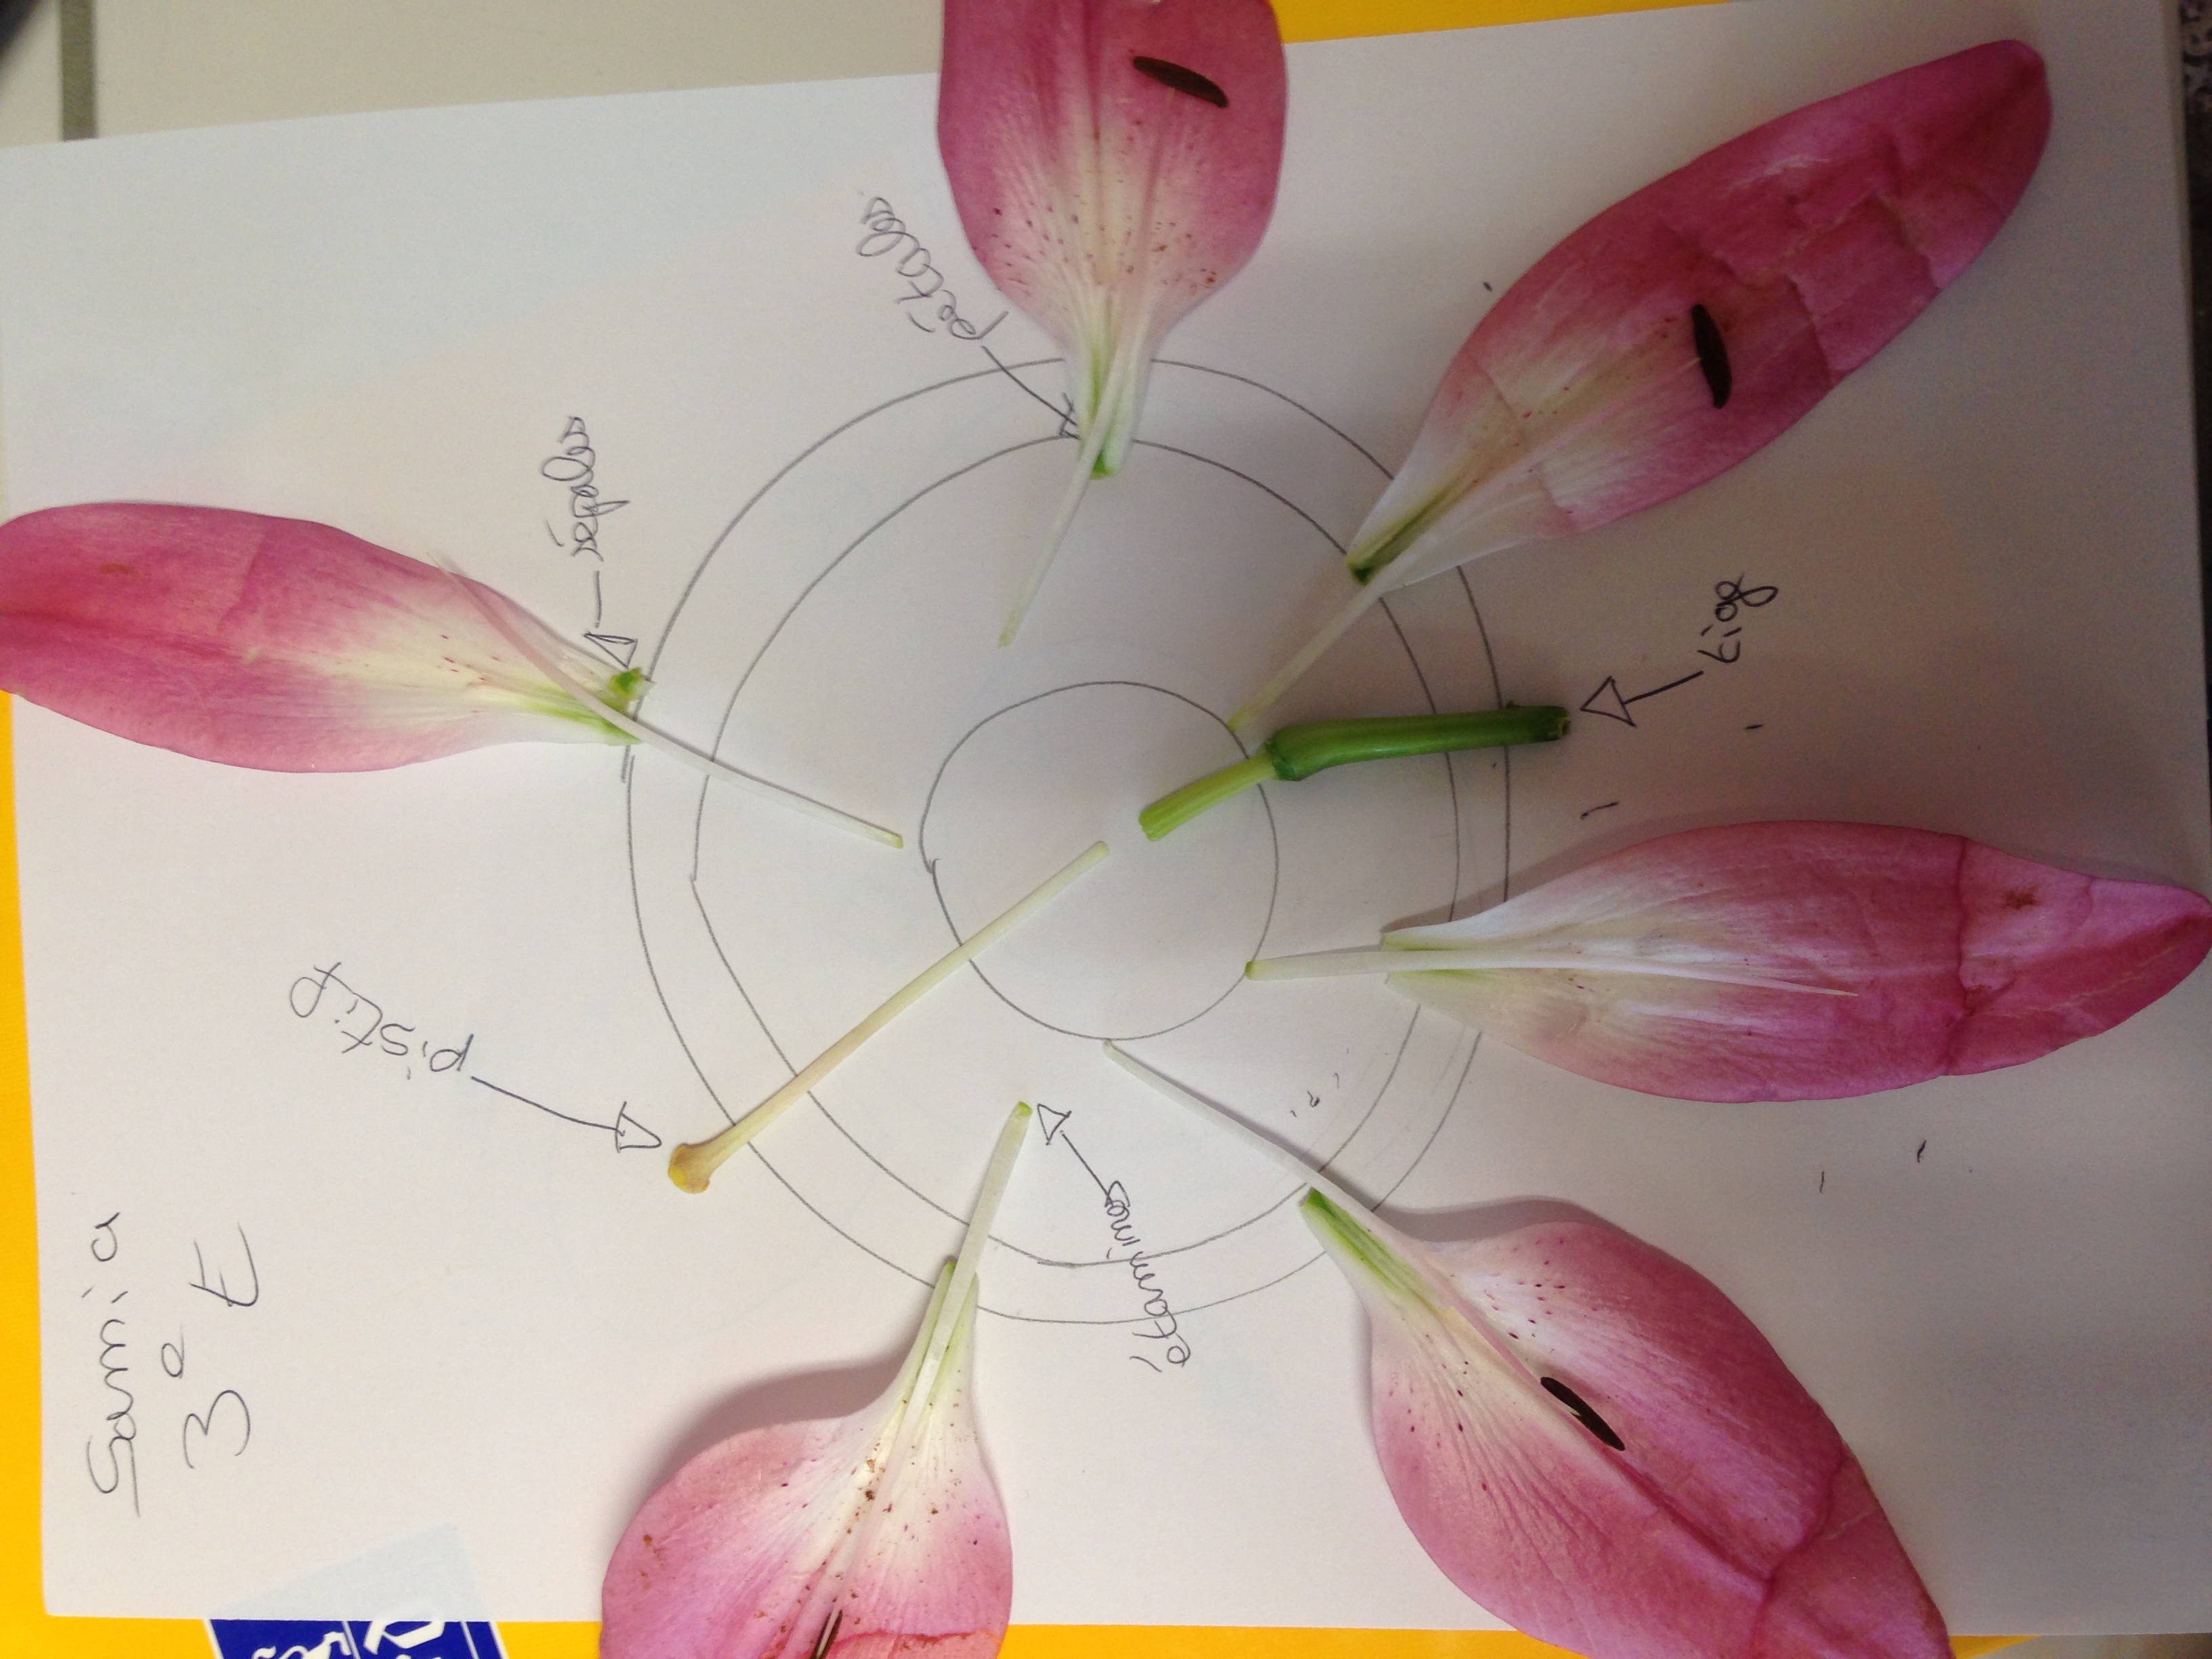 Samia
3e E
pistil
sépales
pétales
étamines
tige